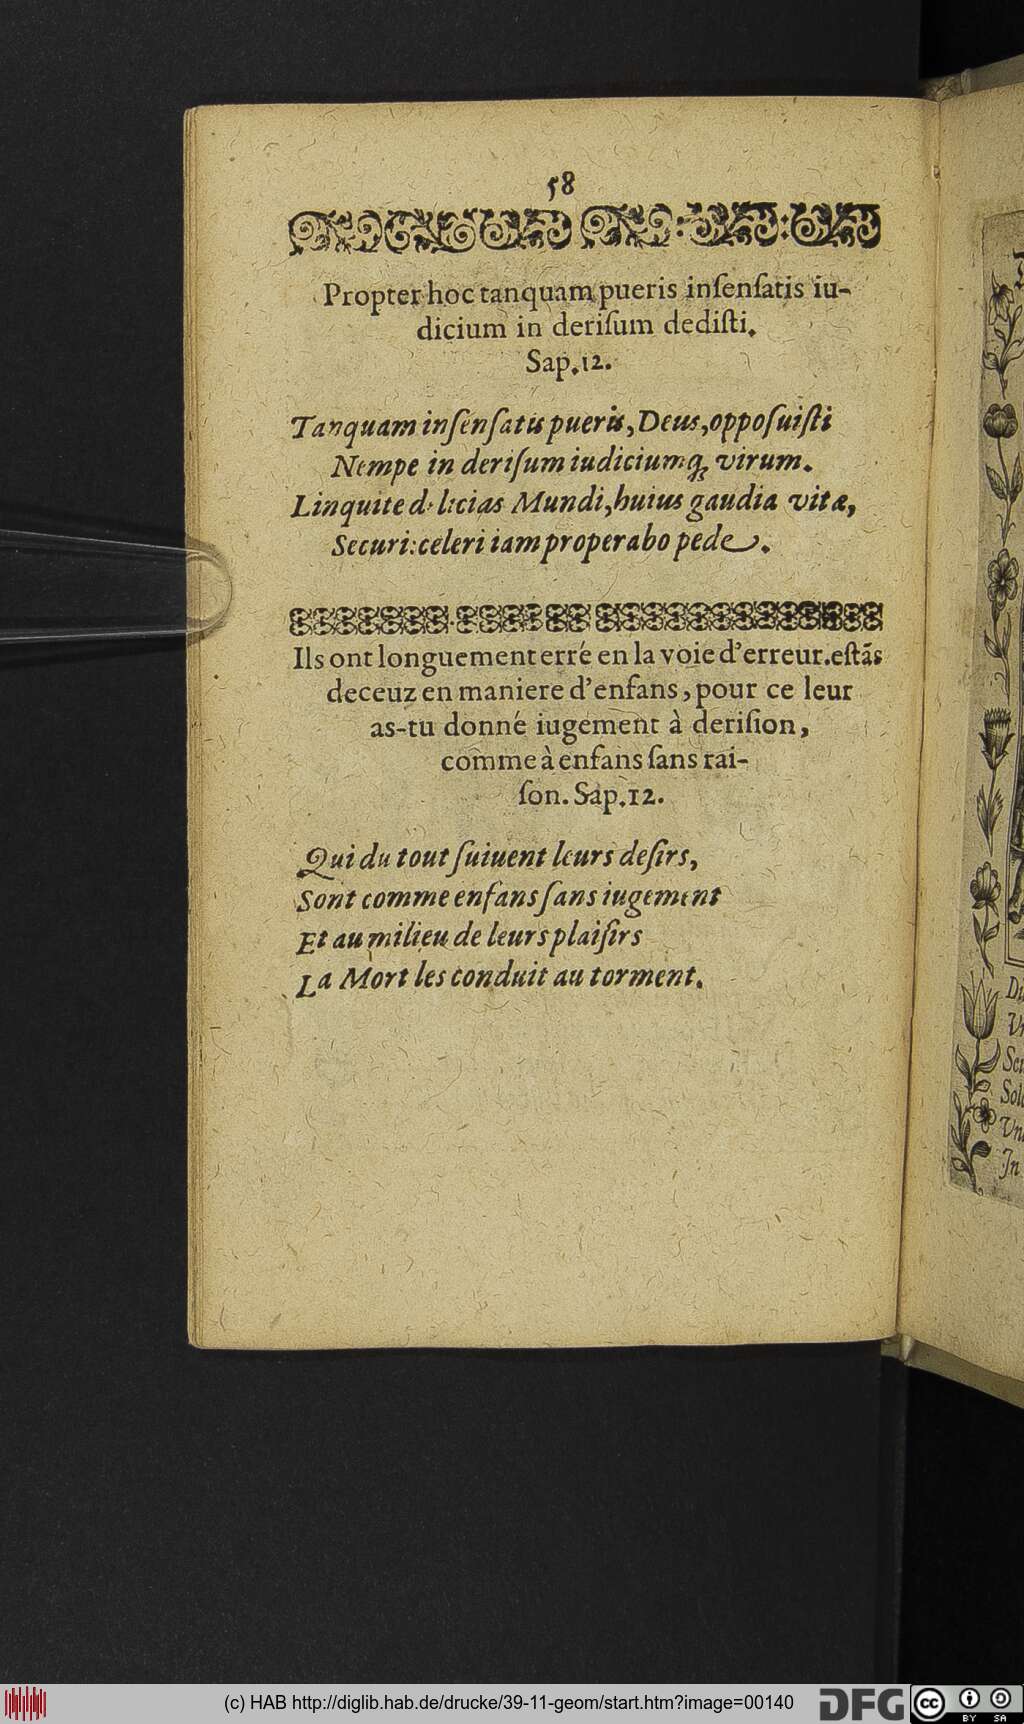 58
Propter hoc tanquam pueris inſenſatis iu-
dicium in deriſum dediſti.
Sap. 12.
Tanquam inſenſatis pueris, Deus, oppoſuiſti
Nempe in deriſum iudiciumq́; virum.
Linquite delicias Mundi, huius gaudia vitæ,
Securi: celeri iam properabo pede.
Ils ont longuement erré en la voie d'erreur. eſtãs
deceuz en maniere d'enfans, pour ce leur
as-tu donné iugement à deriſion,
comme à enfans ſans rai-
ſon. Sap. 12.
Qui du tout ſuiuent leurs deſirs,
Sont comme enfans ſans iugement
Et au milieu de leurs plaiſirs
La Mort les conduit au torment.
Sol
In
(c) HAB http://diglib.hab.de/drucke/39-11-geom/start.htm?image=00140
DFG
cc
BY SA